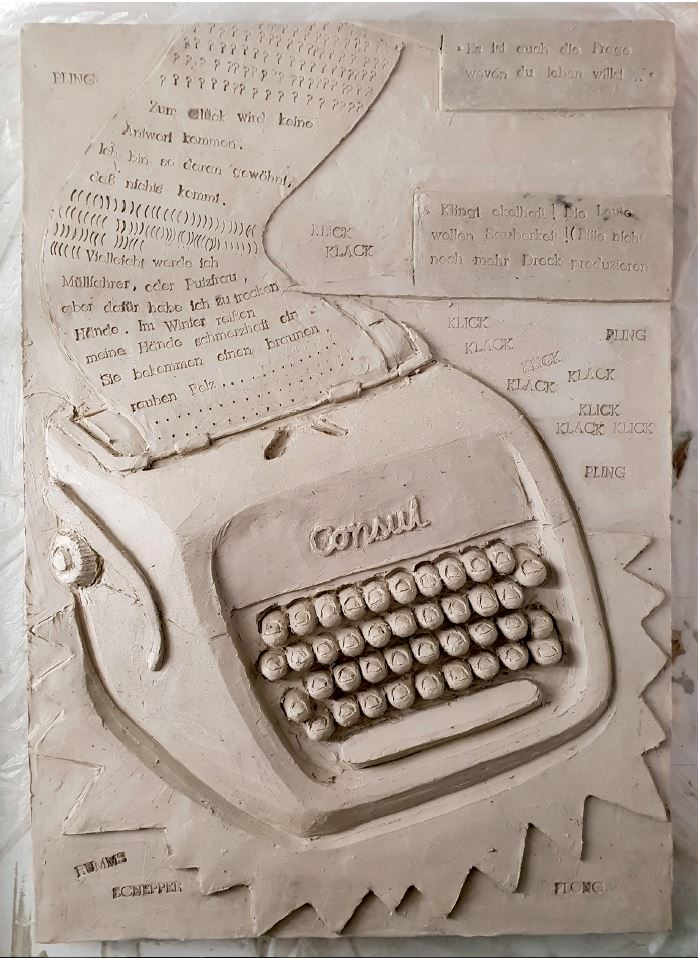 PLING
? ? ? ? ? ? ? ? ? ? ? ? ? ? ? ?
Zum Glück wird keine
Antwort kommen.
Ich bin so daran gewöhnt,
daß nichts kommt.
((((((((((((((((((((((((
(((((( Vielleicht werde ich
Müllfahrer, oder Putzfrau,
aber dafür habe ich zu trocken
Hände. Im Winter reißen
meine Hände schmerzhaft ein
Sie bekommen einen braunen,
rauhen Pelz..........
"Es ist auch die Frage
wovon du leben willst..."
Klingt ekelhaft! Die Leute
wollen Sauberkeit!(Bitte nicht
noch mehr Dreck produzieren
KLICK
KLACK
KLICK
KLACK
PLING
KLICK
KLACK
KLACK
KLICK
KLACK KLICK
PLING
Consul
RUMMS
SCHEPPER
PLONG